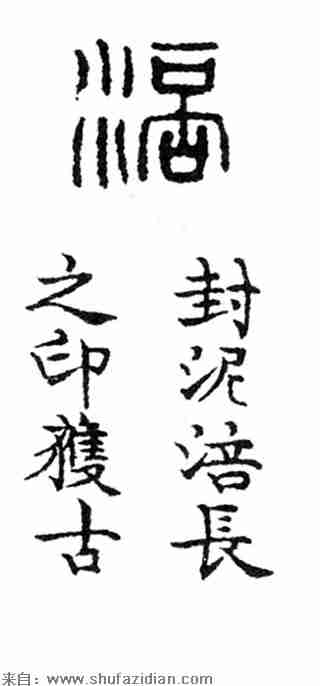 涪
封泥涪長
之印獲古
来自：www.shufazidian.com